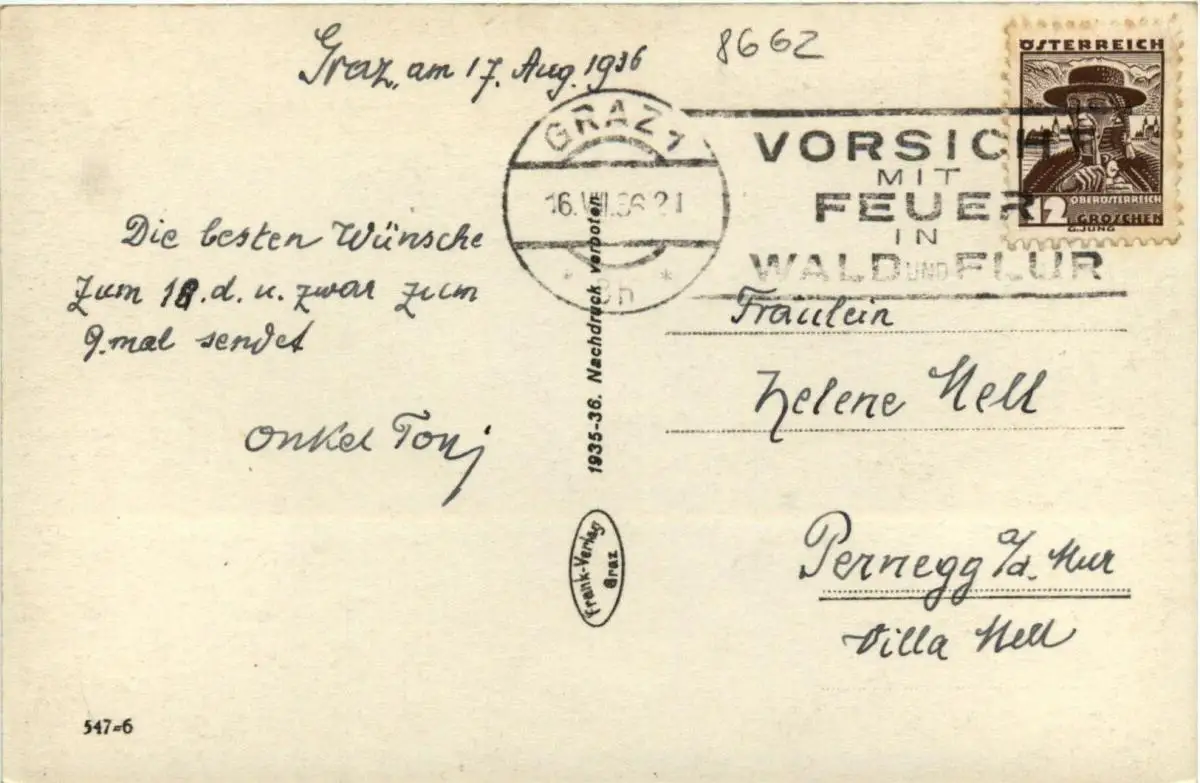 Graz, am 17. Aug. 1936
8662
ÖSTERREICH
OBERÖSTERREICH
12 GROSCHEN
G.JUNG
GRAZ 7
16.VIII.36 21
8h
VORSICHT
MIT
FEUER
IN
WALD UND FLUR
Die besten Wünsche
zum 18.d. u. zwar zum
9.mal sendet
Onkel Tonj
1935-36. Nachdruck verboten
Frank-Verlag
Graz
Fräulein
Helene Nell
Pernegg a/d. Mur
Villa Nell
547=6